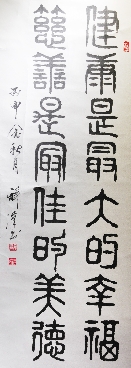 健康是最大的幸福
慈善是最佳的美德
丙申金秋月